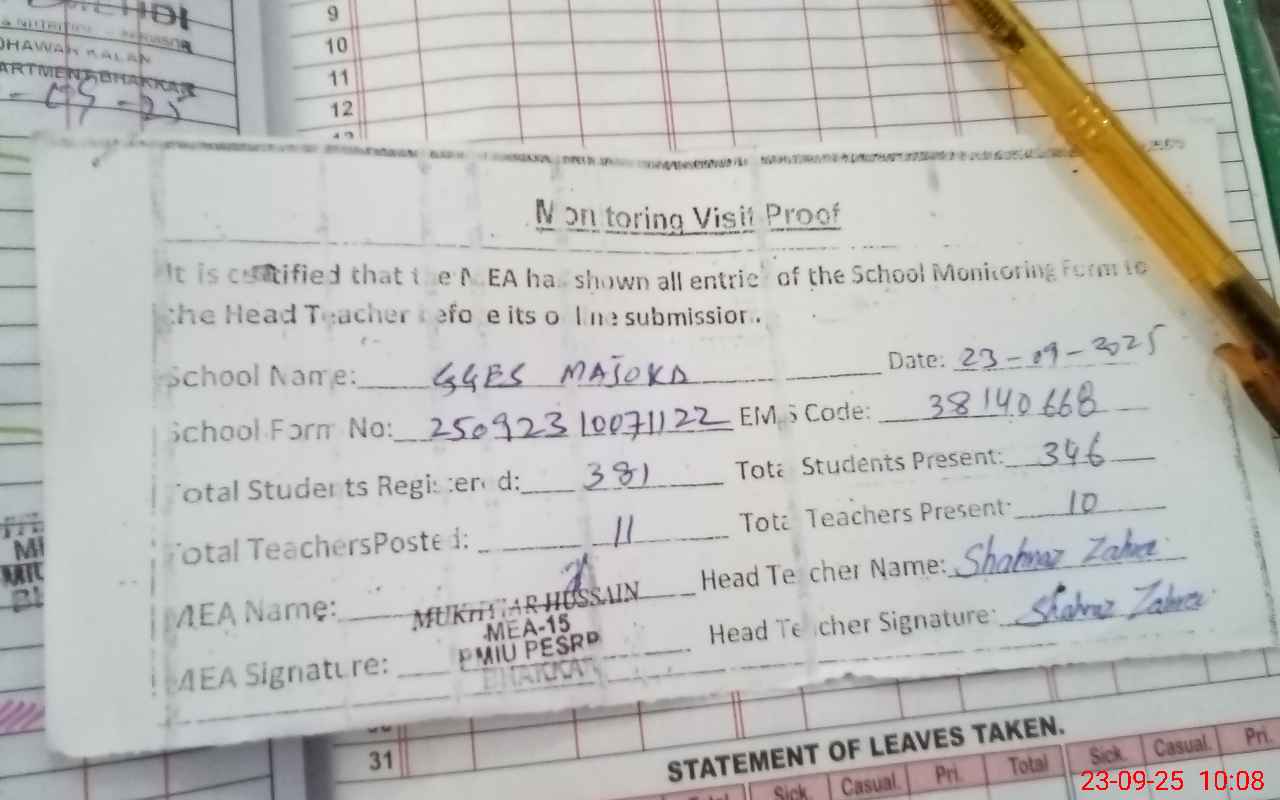 9
10
11
12
DHAWAH KALAN
-09-25
Monitoring Visit Proof
It is certified that the MEA has shown all entries of the School Monitoring Form to
the Head Teacher before its online submission.
School Name: GGES MAJOKA Date: 23-09-2025
School Form No: 25092310071122 EMIS Code: 38140668
Total Students Registered: 381 Total Students Present: 346
Total TeachersPosted: 11 Total Teachers Present: 10
MEA Name: MUKHTIAR HUSSAIN Head Teacher Name: Shahnaz Zahra
MEA-15
MEA Signature: PMIU PESRP Head Teacher Signature: Shahnaz Zahra
BHAKKAR
31
STATEMENT OF LEAVES TAKEN.
Sick. Casual. Pri. Total Sick. Casual. Pri.
23-09-25 10:08